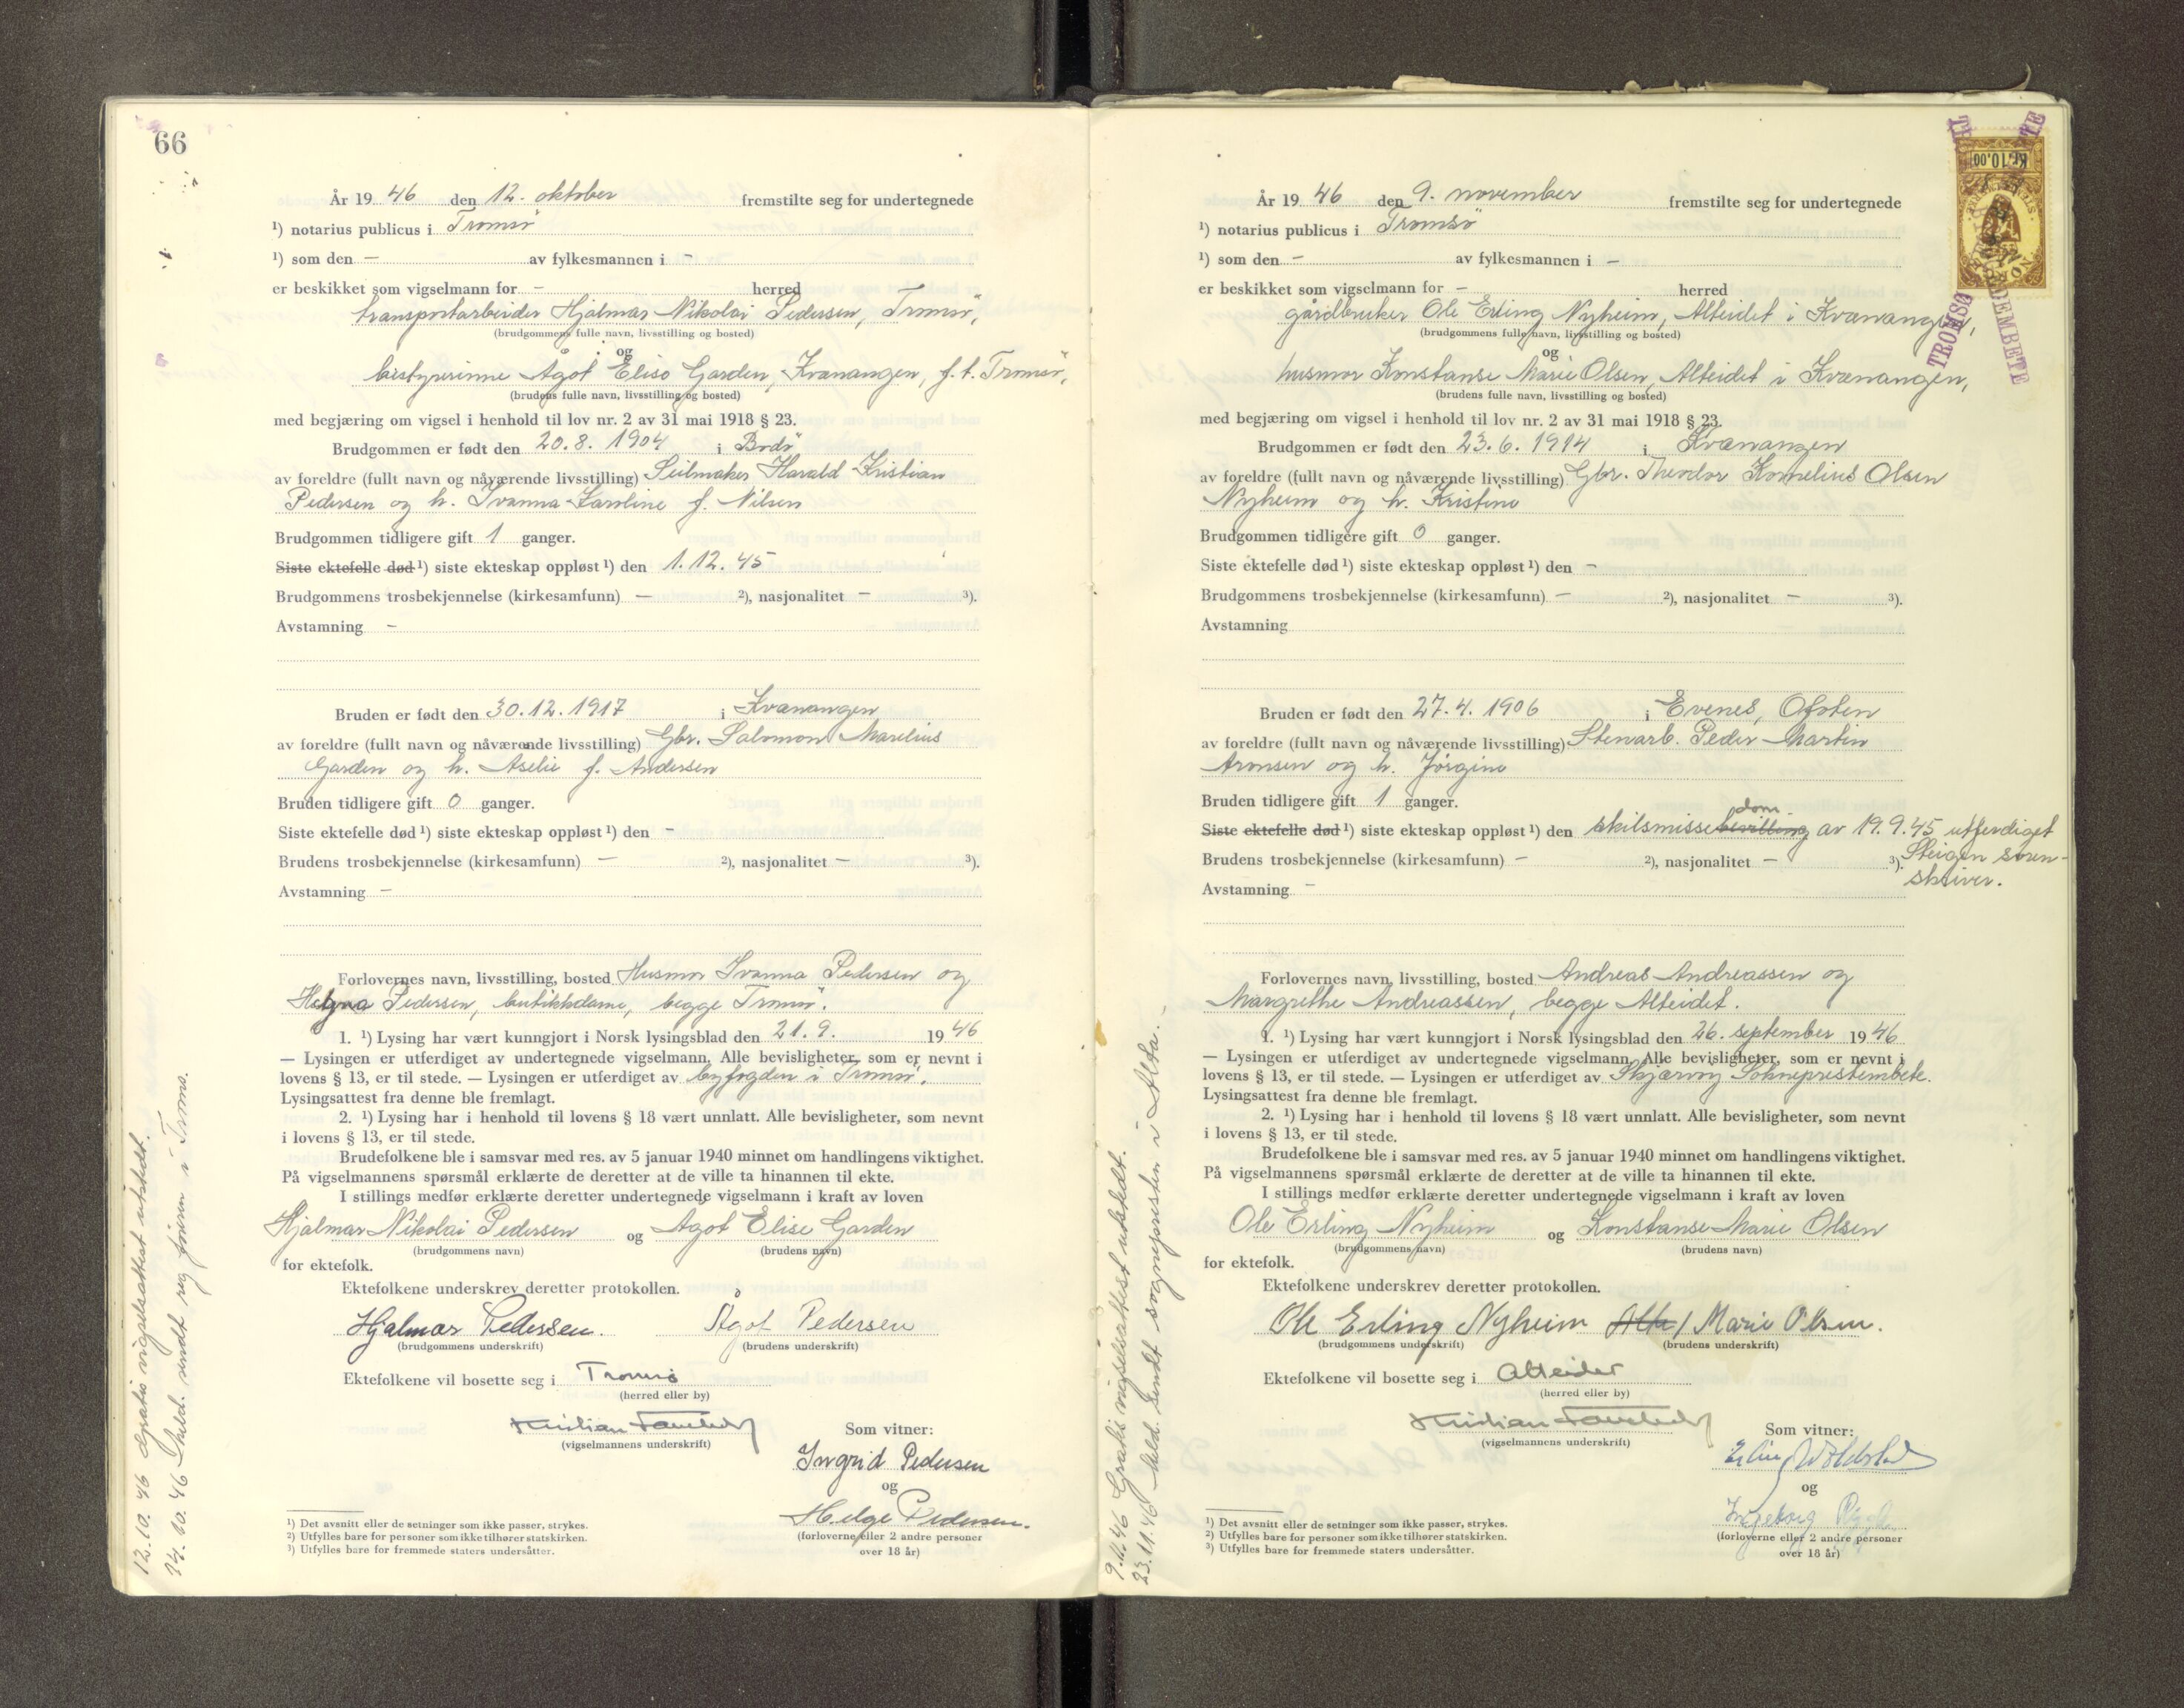 66
År 19 46 den 12. oktober fremstilte seg for undertegnede
¹) notarius publicus i Tromsö
¹) som den – av fylkesmannen i –
er beskikket som vigselmann for – herred
transportarbeider Hjalmar Nikolai Pedersen, Tromsö,
(brudgommens fulle navn, livsstilling og bosted)
og
bestyrerinne Ågot Elise Garden, Kvænangen, f.t. Tromsö,
(brudens fulle navn, livsstilling og bosted)
med begjæring om vigsel i henhold til lov nr. 2 av 31 mai 1918 § 23.
Brudgommen er født den 20.8. 1904 i Bodö
av foreldre (fullt navn og nåværende livsstilling) Seilmaker Harald Kristian
Pedersen og h. Ivanna Karoline f. Nilsen
Brudgommen tidligere gift 1 ganger.
Siste ektefelle død ¹) siste ekteskap oppløst ¹) den 1.12.45
Brudgommens trosbekjennelse (kirkesamfunn) – ²), nasjonalitet – ³).
Avstamning –
Bruden er født den 30.12.1917 i Kvænangen
av foreldre (fullt navn og nåværende livsstilling) Gbr. Salomon Marelius
Garden og h. Aselie f. Andersen
Bruden tidligere gift 0 ganger.
Siste ektefelle død ¹) siste ekteskap oppløst ¹) den –
Brudens trosbekjennelse (kirkesamfunn) – ²), nasjonalitet – ³).
Avstamning –
Forlovernes navn, livsstilling, bosted Husmor Ivanna Pedersen og
Pedersen, butikkdame, begge Tromsö.
1. ¹) Lysing har vært kunngjort i Norsk lysingsblad den 21.9. 19 46
— Lysingen er utferdiget av undertegnede vigselmann. Alle bevisligheter, som er nevnt i
lovens § 13, er til stede. — Lysingen er utferdiget av byfogden i Tromsö.
Lysingsattest fra denne ble fremlagt.
2. ¹) Lysing har i henhold til lovens § 18 vært unnlatt. Alle bevisligheter, som nevnt
i lovens § 13, er til stede.
Brudefolkene ble i samsvar med res. av 5 januar 1940 minnet om handlingens viktighet.
På vigselmannens spørsmål erklærte de deretter at de ville ta hinannen til ekte.
I stillings medfør erklærte deretter undertegnede vigselmann i kraft av loven
Hjalmar Nikolai Pedersen og Agot Elise Garden
(brudgommens navn) (brudens navn)
for ektefolk.
Ektefolkene underskrev deretter protokollen.
Hjalmar Pedersen. Ågot Pedersen
(brudgommens underskrift) (brudens underskrift)
Ektefolkene vil bosette seg i Tromsø
(herred eller by)
(vigselmannens underskrift)
Som vitner:
Ingrid Pedersen
og
Helge Pedersen.
(forloverne eller 2 andre personer
over 18 år)
¹) Det avsnitt eller de setninger som ikke passer, strykes.
²) Utfylles bare for personer som ikke tilhører statskirken.
³) Utfylles bare for fremmede staters undersåtter.
12.10.46 Gratis vigselsattest utstedt.
24.10.46 Meld. sendt reg.föreren i Troms.
År 19 46 den 9. november fremstilte seg for undertegnede
¹) notarius publicus i Tromsö
¹) som den – av fylkesmannen i –
er beskikket som vigselmann for – herred
gårdbruker Ole Erling Nyheim, Alteidet i Kvænangen,
(brudgommens fulle navn, livsstilling og bosted)
og
husmor Konstanse Marie Olsen, Alteidet i Kvænangen,
(brudens fulle navn, livsstilling og bosted)
med begjæring om vigsel i henhold til lov nr. 2 av 31 mai 1918 § 23.
Brudgommen er født den 23.6.1914 i Kvænangen
av foreldre (fullt navn og nåværende livsstilling) Gbr. Theodor Kornelius Olsen
Nyheim og h. Kristine
Brudgommen tidligere gift 0 ganger.
Siste ektefelle død ¹) siste ekteskap oppløst ¹) den –
Brudgommens trosbekjennelse (kirkesamfunn) – ²), nasjonalitet – ³).
Avstamning
Bruden er født den 27.4.1906 i Evenes, Ofoten
av foreldre (fullt navn og nåværende livsstilling) Stenarb. Peder Martin
Aronsen og h. Jörgine
Bruden tidligere gift 1 ganger.
dom
Siste ektefelle død ¹) siste ekteskap oppløst ¹) den skilsmissebevilling av 19.9.45 utferdiget
Steigen soren-
Brudens trosbekjennelse (kirkesamfunn) – ²), nasjonalitet – ³).
skriver.
Avstamning –
Forlovernes navn, livsstilling, bosted Andreas Andreassen og
Margrethe Andreassen, begge Alteidet.
1. ¹) Lysing har vært kunngjort i Norsk lysingsblad den 26. september 19 46
— Lysingen er utferdiget av undertegnede vigselmann. Alle bevisligheter, som er nevnt i
lovens § 13, er til stede. — Lysingen er utferdiget av Skjervöy Sokneprestembete.
Lysingsattest fra denne ble fremlagt.
2. ¹) Lysing har i henhold til lovens § 18 vært unnlatt. Alle bevisligheter, som nevnt
i lovens § 13, er til stede.
Brudefolkene ble i samsvar med res. av 5 januar 1940 minnet om handlingens viktighet.
På vigselmannens spørsmål erklærte de deretter at de ville ta hinannen til ekte.
I stillings medfør erklærte deretter undertegnede vigselmann i kraft av loven
Ole Erling Nyheim og Konstanse Marie Olsen
(brudgommens navn) (brudens navn)
for ektefolk.
Ektefolkene underskrev deretter protokollen.
Ole Erling Nyheim Marie Olsen.
(brudgommens underskrift) (brudens underskrift)
Ektefolkene vil bosette seg i Alteidet
(herred eller by)
(vigselmannens underskrift)
Som vitner:
og
Ingeborg
(forloverne eller 2 andre personer
over 18 år)
¹) Det avsnitt eller de setninger som ikke passer, strykes.
²) Utfylles bare for personer som ikke tilhører statskirken.
³) Utfylles bare for fremmede staters undersåtter.
9.11.46 Gratis vigselsattest utstedt.
23.11.46 Meld. sendt sognepresten i Alta.
Kr. 10.00
TROMSØ